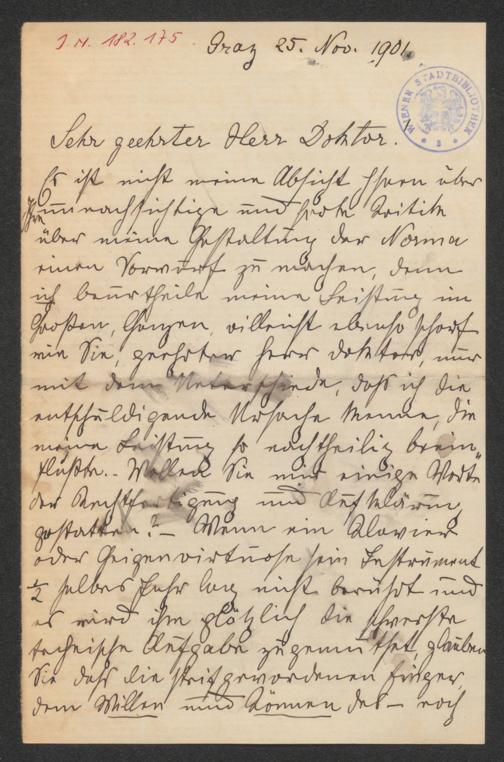 J. N. 182.175
Graz 25. Nov. 1901.
WIENER STADTBIBLIOTHEK
Sehr geehrter Herr Doktor.
Es ist nicht meine Absicht Ihnen über
Ihre unnachsichtige und Kritik
über meine Gestaltung der Norma
einen Vorwurf zu machen, denn
ich beurtheile meine Leistung im
Großen, Ganzen, villeicht ebenso scharf
wie Sie, geehrter Herr Doktor, nur
mit dem Unterschiede, daß ich die
entschuldigende Ursache kenne, die
meine Leistung so nachtheilig beein-
flußte. Wollen Sie mir einige Worte
der Rechtfertigung und Aufklärung
gestatten? – Wenn ein Klavier
oder Geigenvirtuose sein Instrument
1/2 halbes Jahr lang nicht berührt und
es wird ihm plötzlich die schwerste
technische Aufgabe zugemuthet, glauben
Sie daß die steifgewordenen Finger,
dem Willen und Können des – noch